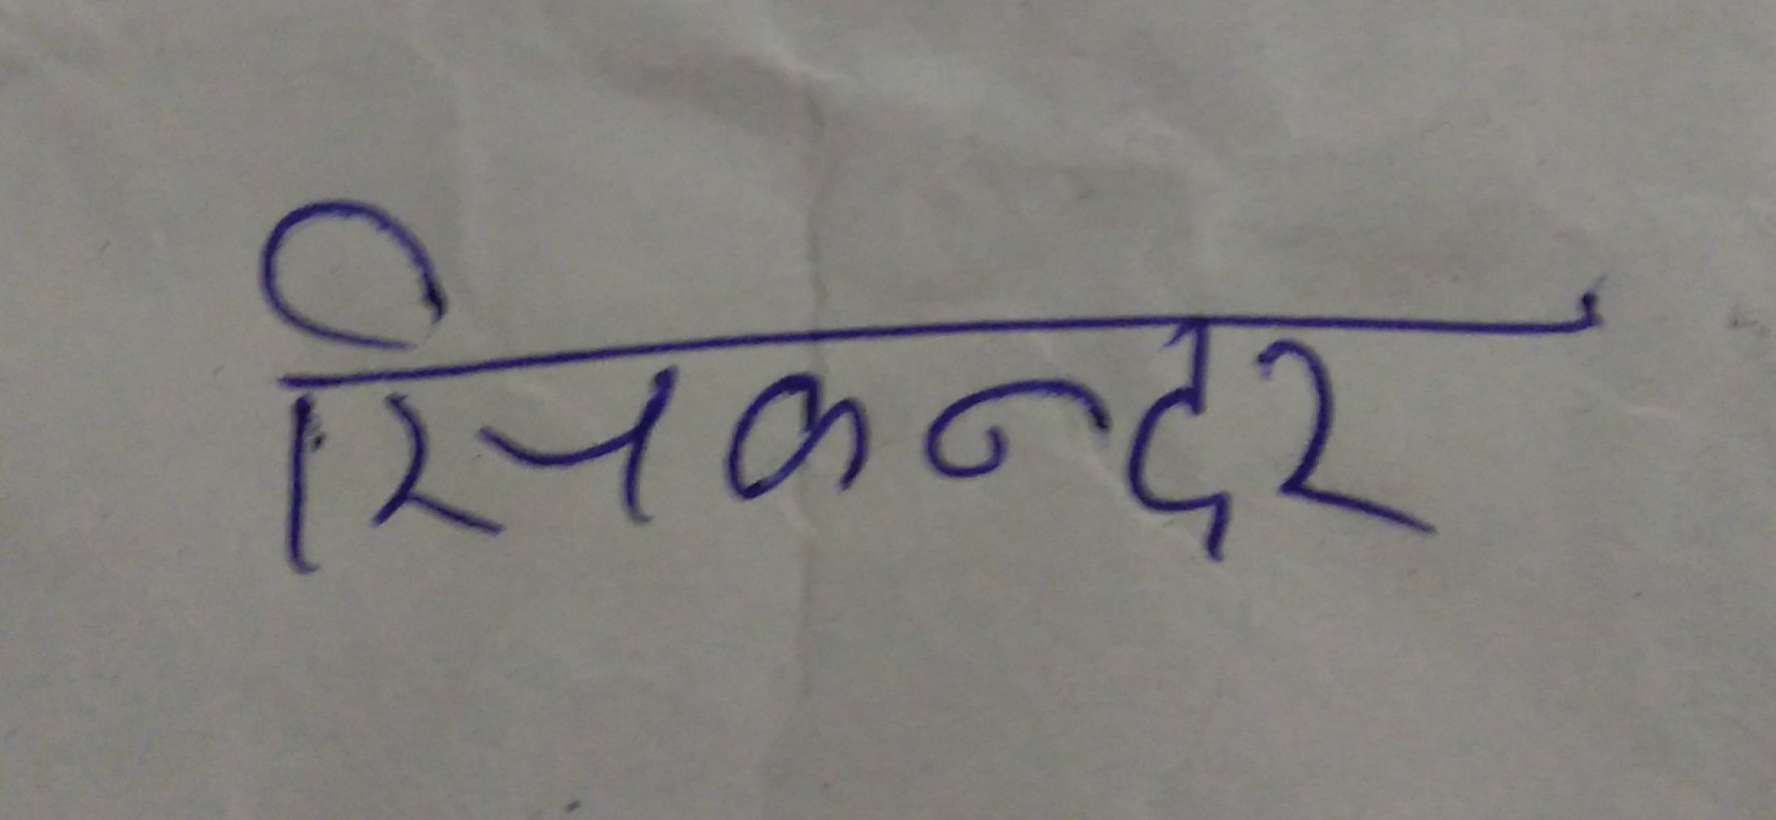 सिकन्दर